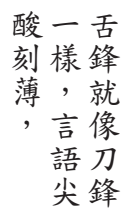 舌鋒就像刀鋒
一樣，言語尖
酸刻薄，